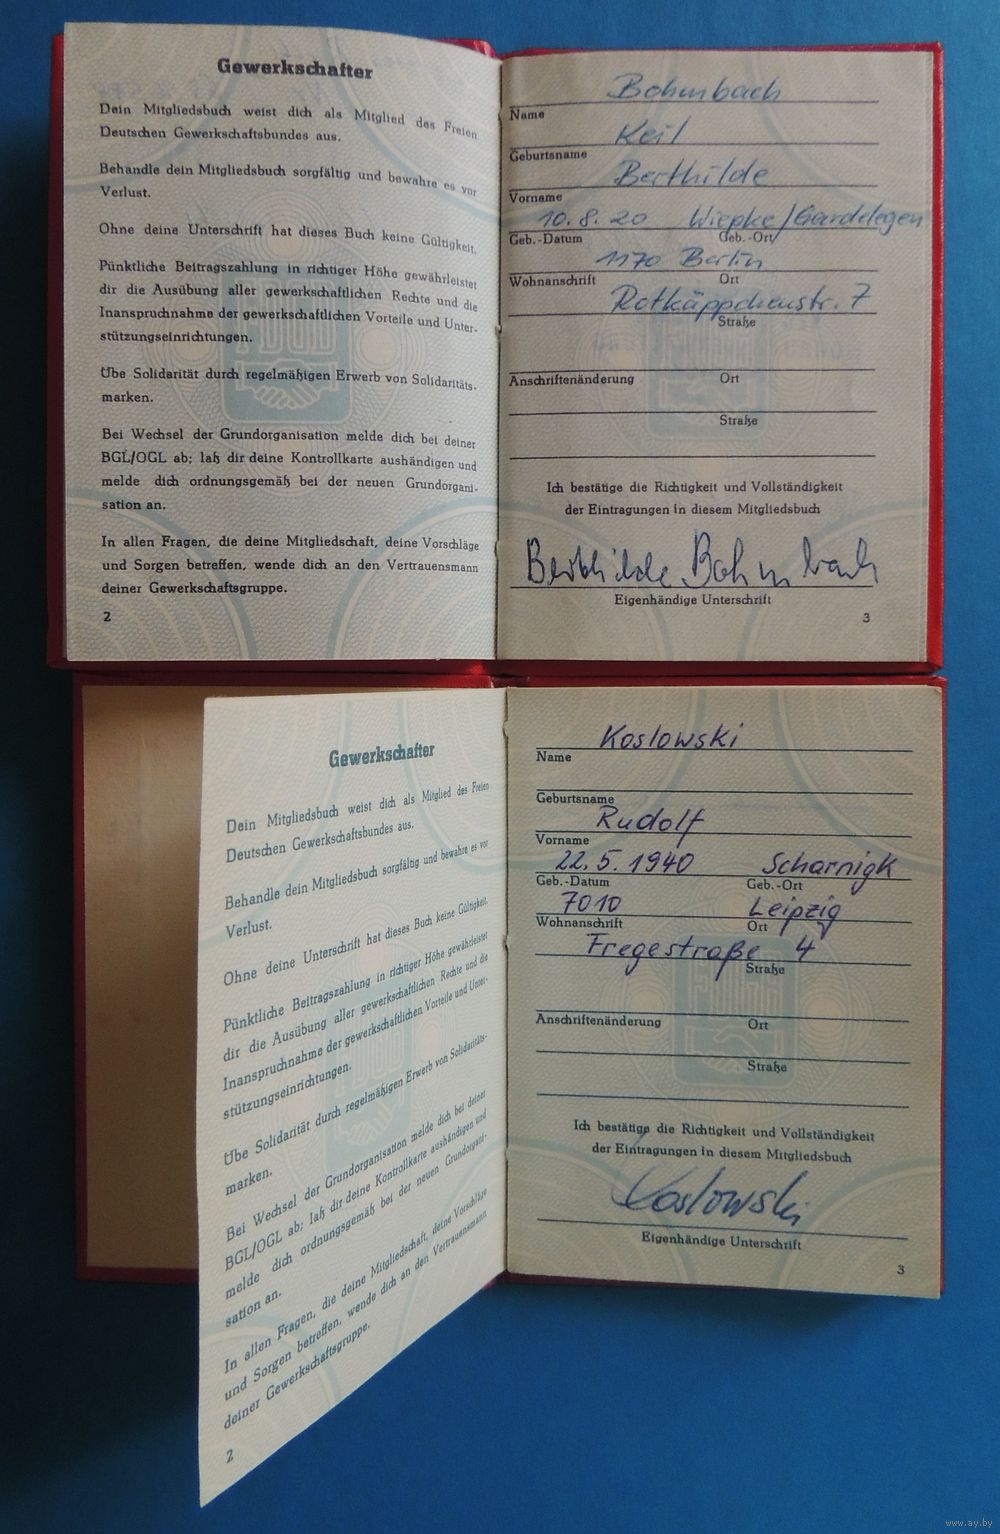 Gewerkschafter
Dein Mitgliedsbuch weist dich als Mitglied des Freien
Deutschen Gewerkschaftsbundes aus.
Behandle dein Mitgliedsbuch sorgfältig und bewahre es vor
Verlust.
Ohne deine Unterschrift hat dieses Buch keine Gültigkeit.
Pünktliche Beitragszahlung in richtiger Höhe gewährleistet
dir die Ausübung aller gewerkschaftlichen Rechte und die
Inanspruchnahme der gewerkschaftlichen Vorteile und Unter-
stützungseinrichtungen.
Übe Solidarität durch regelmäßigen Erwerb von Solidaritäts-
marken.
Bei Wechsel der Grundorganisation melde dich bei deiner
BGL/OGL ab; laß dir deine Kontrollkarte aushändigen und
melde dich ordnungsgemäß bei der neuen Grundorgani-
sation an.
In allen Fragen, die deine Mitgliedschaft, deine Vorschläge
und Sorgen betreffen, wende dich an den Vertrauensmann
deiner Gewerkschaftsgruppe.
2
Bohmbach
Name
Keil
Geburtsname
Berthilde
Vorname
10.8.20 Wiepke/Gardelegen
Geb.-Datum Geb.-Ort
1170 Berlin
Wohnanschrift Ort
Rotkäppchenstr. 7
Straße
Anschriftenänderung Ort
Straße
Ich bestätige die Richtigkeit und Vollständigkeit
der Eintragungen in diesem Mitgliedsbuch
Berthilde Bohmbach
Eigenhändige Unterschrift
3
Gewerkschafter
Dein Mitgliedsbuch weist dich als Mitglied des Freien
Deutschen Gewerkschaftsbundes aus.
Behandle dein Mitgliedsbuch sorgfältig und bewahre es vor
Verlust.
Ohne deine Unterschrift hat dieses Buch keine Gültigkeit.
Pünktliche Beitragszahlung in richtiger Höhe gewährleistet
dir die Ausübung aller gewerkschaftlichen Rechte und die
Inanspruchnahme der gewerkschaftlichen Vorteile und Unter-
stützungseinrichtungen.
Übe Solidarität durch regelmäßigen Erwerb von Solidaritäts-
marken.
Bei Wechsel der Grundorganisation melde dich bei deiner
BGL/OGL ab; laß dir deine Kontrollkarte aushändigen und
melde dich ordnungsgemäß bei der neuen Grundorgani-
sation an.
In allen Fragen, die deine Mitgliedschaft, deine Vorschläge
und Sorgen betreffen, wende dich an den Vertrauensmann
deiner Gewerkschaftsgruppe.
2
Koslowski
Name
Geburtsname
Rudolf
Vorname
22.5.1940 Scharnigk
Geb.-Datum Geb.-Ort
7010 Leipzig
Wohnanschrift Ort
Fregestraße 4
Straße
Anschriftenänderung Ort
Straße
Ich bestätige die Richtigkeit und Vollständigkeit
der Eintragungen in diesem Mitgliedsbuch
Koslowski
Eigenhändige Unterschrift
3
www.ay.by